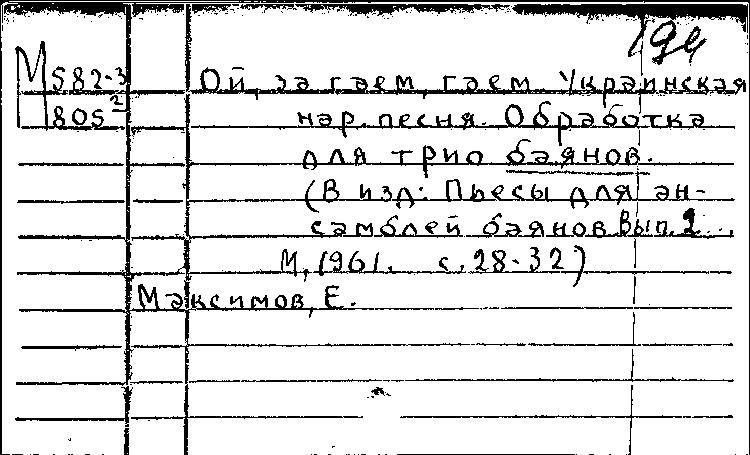 19ч
М 582-3 Ой, за гаем, гаем. Украинская
805² нар. песня. Обработка
для трио баянов.
(В изд: Пьесы для ан-
самблей баянов Вып. 2..
М, 1961. с. 28-32)
Максимов, Е.